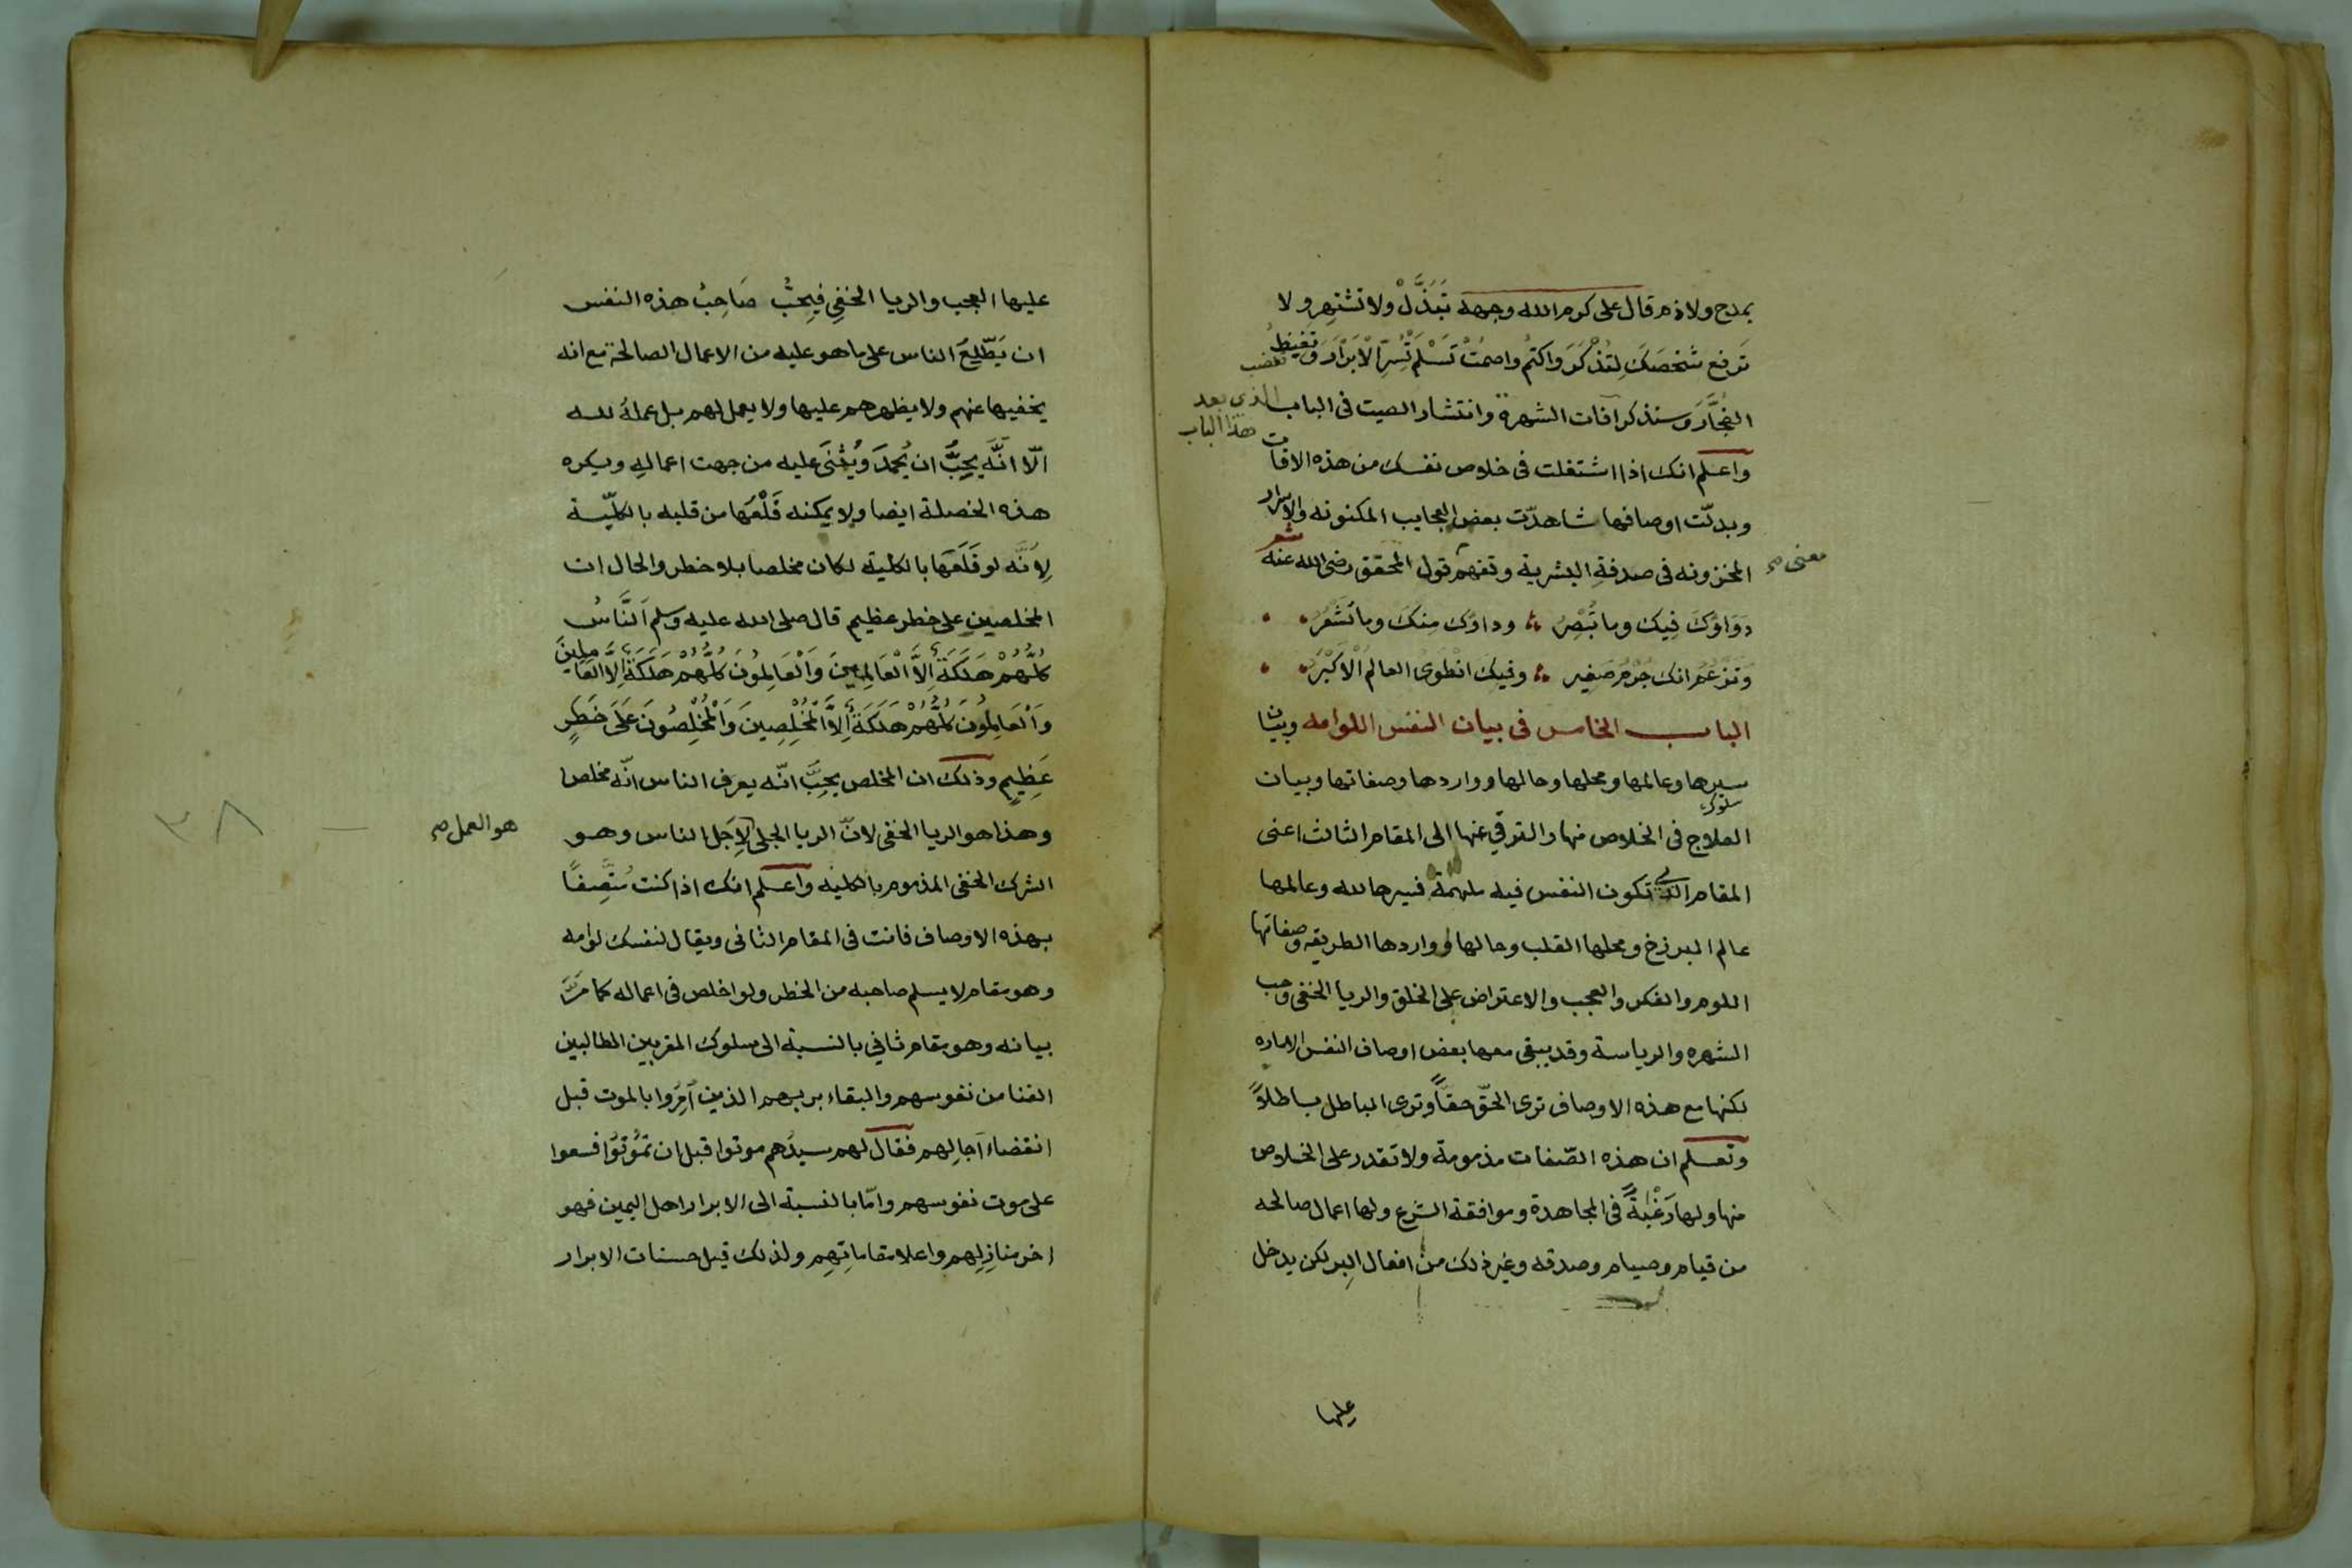 بمدح ولا ذم قال على كرم الله وجهه تَبَذَّلْ ولا تشتهر ولا
تَرفع شَخصَكَ لِتُذْكَرَ واكتم واصمُتْ تَسْلَمْ تُسِرّ الاَبْرَارَ وتغيظُ
تغضب
الفُجَّارَ وسنذكر آفات الشهرة وانتشار الصيت فى الباب الذى بعد
هذا الباب
واعلم انك اذا اشتغلت فى خلاص نفسك من هذه الافات
وبدلّت اوصافها شاهدّت بعض العجايب المكنونه والاسرار
المخزونه فى صدفةِ البشرية وتفهم قول المحقق رضى الله عنه شعر
معنى صح
دَوَاؤكَ فِيك وما تُبْصِرُ وداؤك مِنكَ وما تَشْعُرُ
وَتزعُمُ انك جُرْمٌ صَغير وفيكَ انْطَوىُ العالمُ الْاكْبَرُ
الباب الخامس فى بيان النفس اللوامه وبيان
سيرها وعالمها ومحلها وحالها وواردها وصفاتها وبيان
سلوك
العلاج فى الخلاص منها والترقي عنها الى المقام الثالث اعنى
المقام الذي تكون النفس فيه ملهمة فسيرها لله وعالمها
عالم البرزخ ومحلها القلب وحالها وواردها الطريقه وصفاتها
اللوم والفكر والعجب والاعتراض على الخلق والريا الخفى وحب
الشهره والرياسة وقد يبقى معها بعض اوصاف النفس الاماره
لكنها مع هذه الاوصاف ترى الحَقّ حقاً وترى الباطل باطلاً
وتعلم ان هذه الصّفات مذمومة ولا تقدر على الخلاص
منها ولها رَغْبَةً فى المجاهدة وموافقة الشرع ولها اعمال صالحه
من قيام وصيام وصدقه وغير ذلك من افعال البِر لكن يدخل
عليها
عليها العجب والريا الخفِى فيحبُّ صَاحِبُ هذه النفس
ان يَطّلِعَ الناس على ما هو عليه من الاعمال الصالحة مع انه
يخفيها عنهم ولا يظهرهم عليها ولا يعمل لهم بل عملهُ لله
الّا انَّه يحِبُّ ان يُحمَدَ ويُثْنىَ عليه من جهت اعمالهِ ويكره
هذه الخصلة ايضا ولا يمكنه قَلْعُها من قلبه بالكلّية
لِانّه لو قَلَعَها بالكلية لكان مخلصا بلا خطر والحال ان
المخلصين على خطر عظيم قال صلى الله عليه وسلم اَلنَّاسُ
كُلُّهُمْ هَلَكَةٌ اِلاَّ الْعَالِمِينَ وَالْعَالِمُونَ كُلُّهُمْ هَلَكَةٌ اِلاَّ العَامِلِينَ
وَالْعَامِلُونَ كُلُّهُمْ هَلَكَةٌ اِلاَّ الْمُخْلِصِينَ وَالْمُخْلِصُونَ عَلَى خَطَرٍ
عَظِيمٍ وذلك ان المخلص يحِبَّ انّه يعرَف الناس انّه مخلص
وهذا هو الريا الخفى لانّ الريا الجلى لاِجَل الناس وهو
هو العمل صح
٣٨
الشرك الخفى المذموم بالكليه واعلم انك اذا كنت مُتّصِفاً
بهذه الاوصاف فانت فى المقام الثانى ويقال لنفسك لوامه
وهو مقام لا يسلم صاحبه من الخطر ولو اخلص فى اعماله كما مَرَّ
بيانه وهو مقام ثاني بالنسبة الى سلوك المقربين الطالبين
الفنا من نفوسهم والبقاء بربهم الذين اُمِرُوا بالموت قبل
انقضاء آجالِهم فقال لهم سيدُهم موتوا قبل ان تَمُوْتُوا فسعوا
على موت نفوسهم وامّا بالنسبة الى الابرار اهل اليمين فهو
اخر منازِلِهم واعلا مقاماتِهِم ولذلك قيل حسنات الابرار